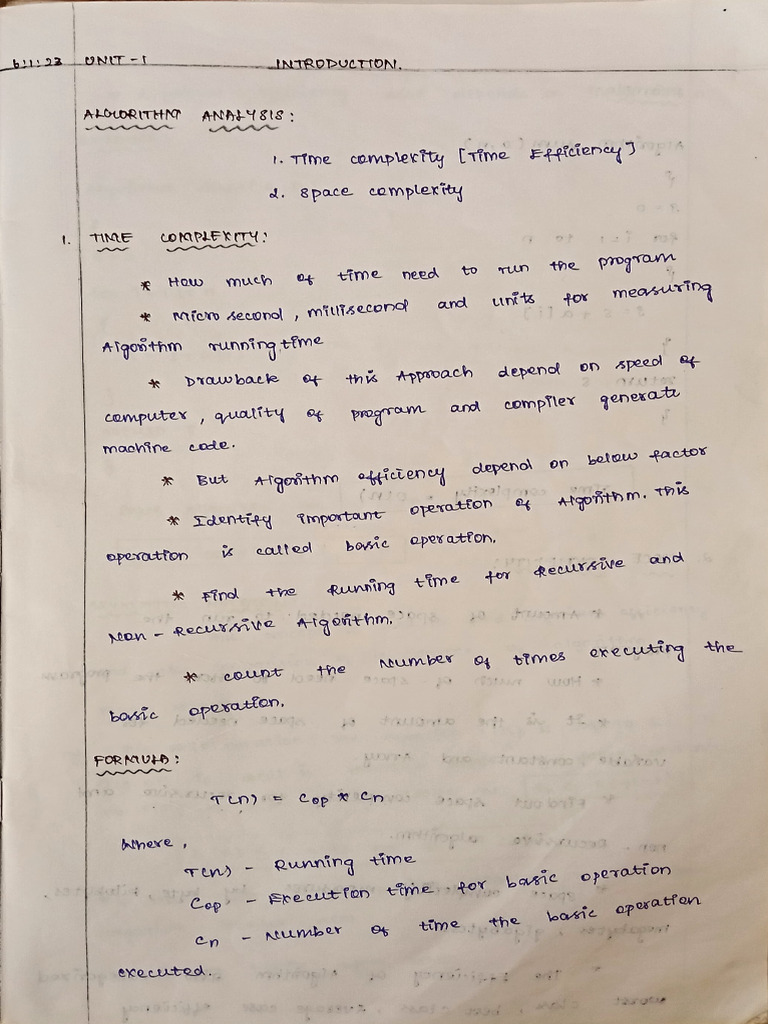 6:1:23 UNIT-1 INTRODUCTION.
ALGORITHM ANALYSIS:
1. Time complexity [Time Efficiency]
2. Space complexity
1. TIME COMPLEXITY:
* How much of time need to run the program
* Micro second, millisecond and units for measuring
Algorithm running time
* Drawback of this Approach depend on speed of
computer, quality of program and compiler generate
machine code.
* But Algorithm efficiency depend on below factor
* Identify important operation of Algorithm. This
operation is called basic operation.
* Find the Running time for Recursive and
Non - Recursive Algorithm.
* count the Number of times executing the
basic operation.
FORMULA:
T(n) = Cop * Cn
Where,
T(n) - Running time
Cop - Execution time for basic operation
Cn - Number of time the basic operation
executed.